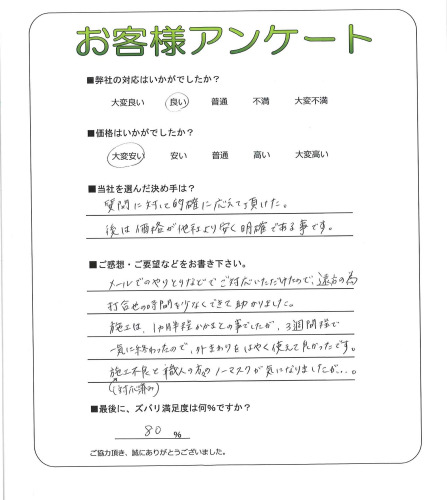 お客様アンケート
■弊社の対応はいかがでしたか?
大変良い 良い 普通 不満 大変不満
■価格はいかがでしたか?
大変安い 安い 普通 高い 大変高い
■当社を選んだ決め手は?
質問に対して的確に応えて頂けた。
後は価格が他社より安く明確である事です。
■ご感想・ご要望などをお書き下さい。
メールでのやりとりなどでご対応いただけたので、遠方の為
打合せの時間を少なくできて助かりました。
施工は、1ヶ月半程かかるとの事でしたが、3週間程で
一気に終わったので、外まわりをはやく使えて良かったです。
施工不良と職人の方のノーマスクが気になりましたが...。
(対応済み)
■最後に、ズバリ満足度は何%ですか?
80 %
ご協力頂き、誠にありがとうございました。